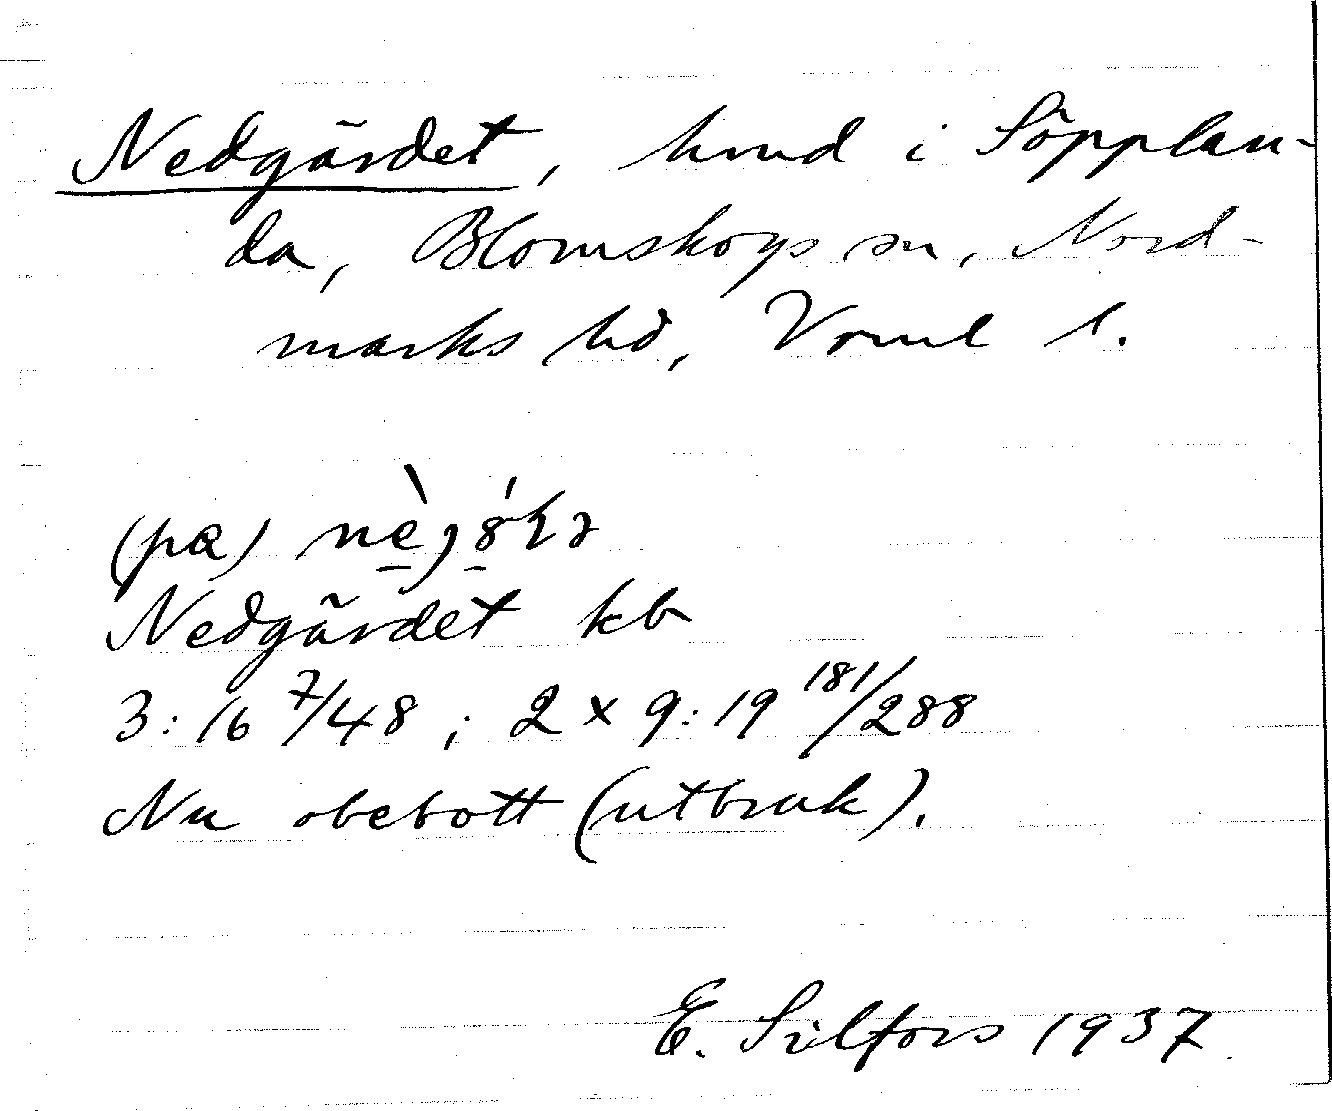 Nedgärdet, hmd i Söpplan-
da, Blomskogs sn, Nord-
marks hd, Vrml l.
(på)
Nedgärdet kb
3:16 7/48; 2 x 9:19 181/288
Nu obebott (utbruk).
E. Silfors 1937